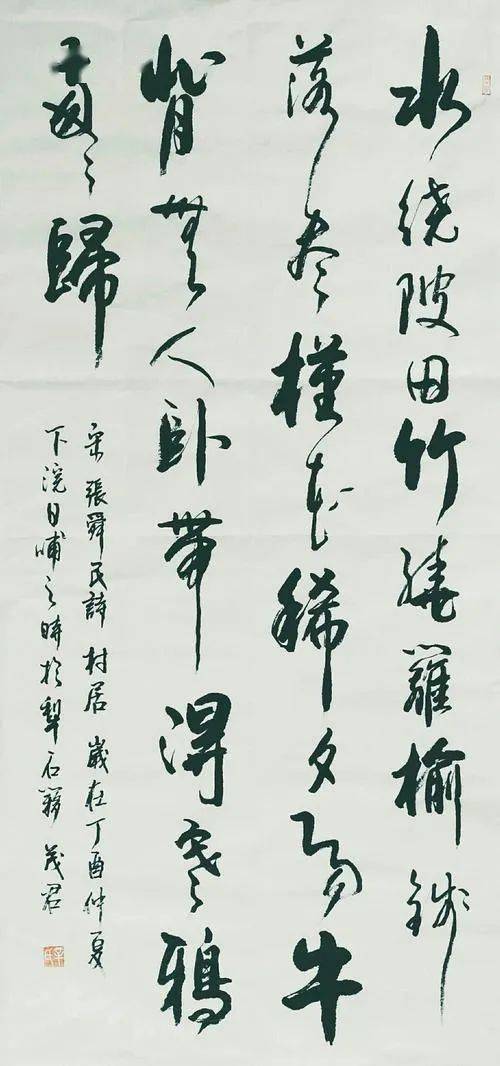 水繞陂田竹繞籬榆錢
落盡槿花稀夕陽牛
背無人卧帶得寒鴉
兩々歸
宋張舜民詩村居歲在丁酉仲夏
下浣日晡之時於犁石茂君